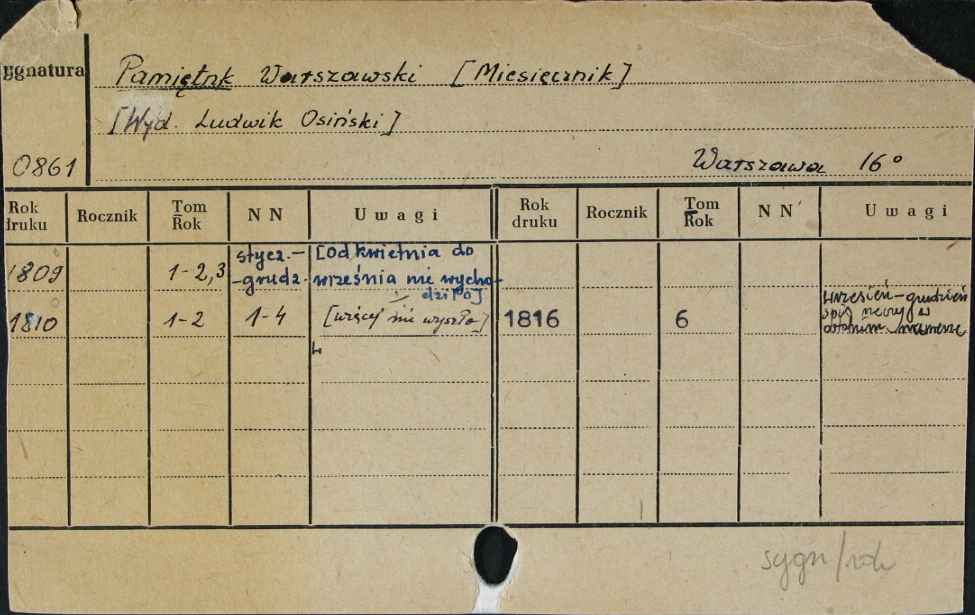 ygnatura
Pamiętnk Warszawski [Miesięcznik]
[Wyd. Ludwik Osiński]
0861
Warszawa 16°
Rok druku Rocznik Tom Rok NN Uwagi Rok druku Rocznik Tom Rok NN Uwagi
1809 1-2,3 stycz.- -grudz. [od kwietnia do września nie wychodziło]
1810 1-2 1-4 [więcej nie wyszło] 1816 6 wrzesień-grudzień
sygn/rok